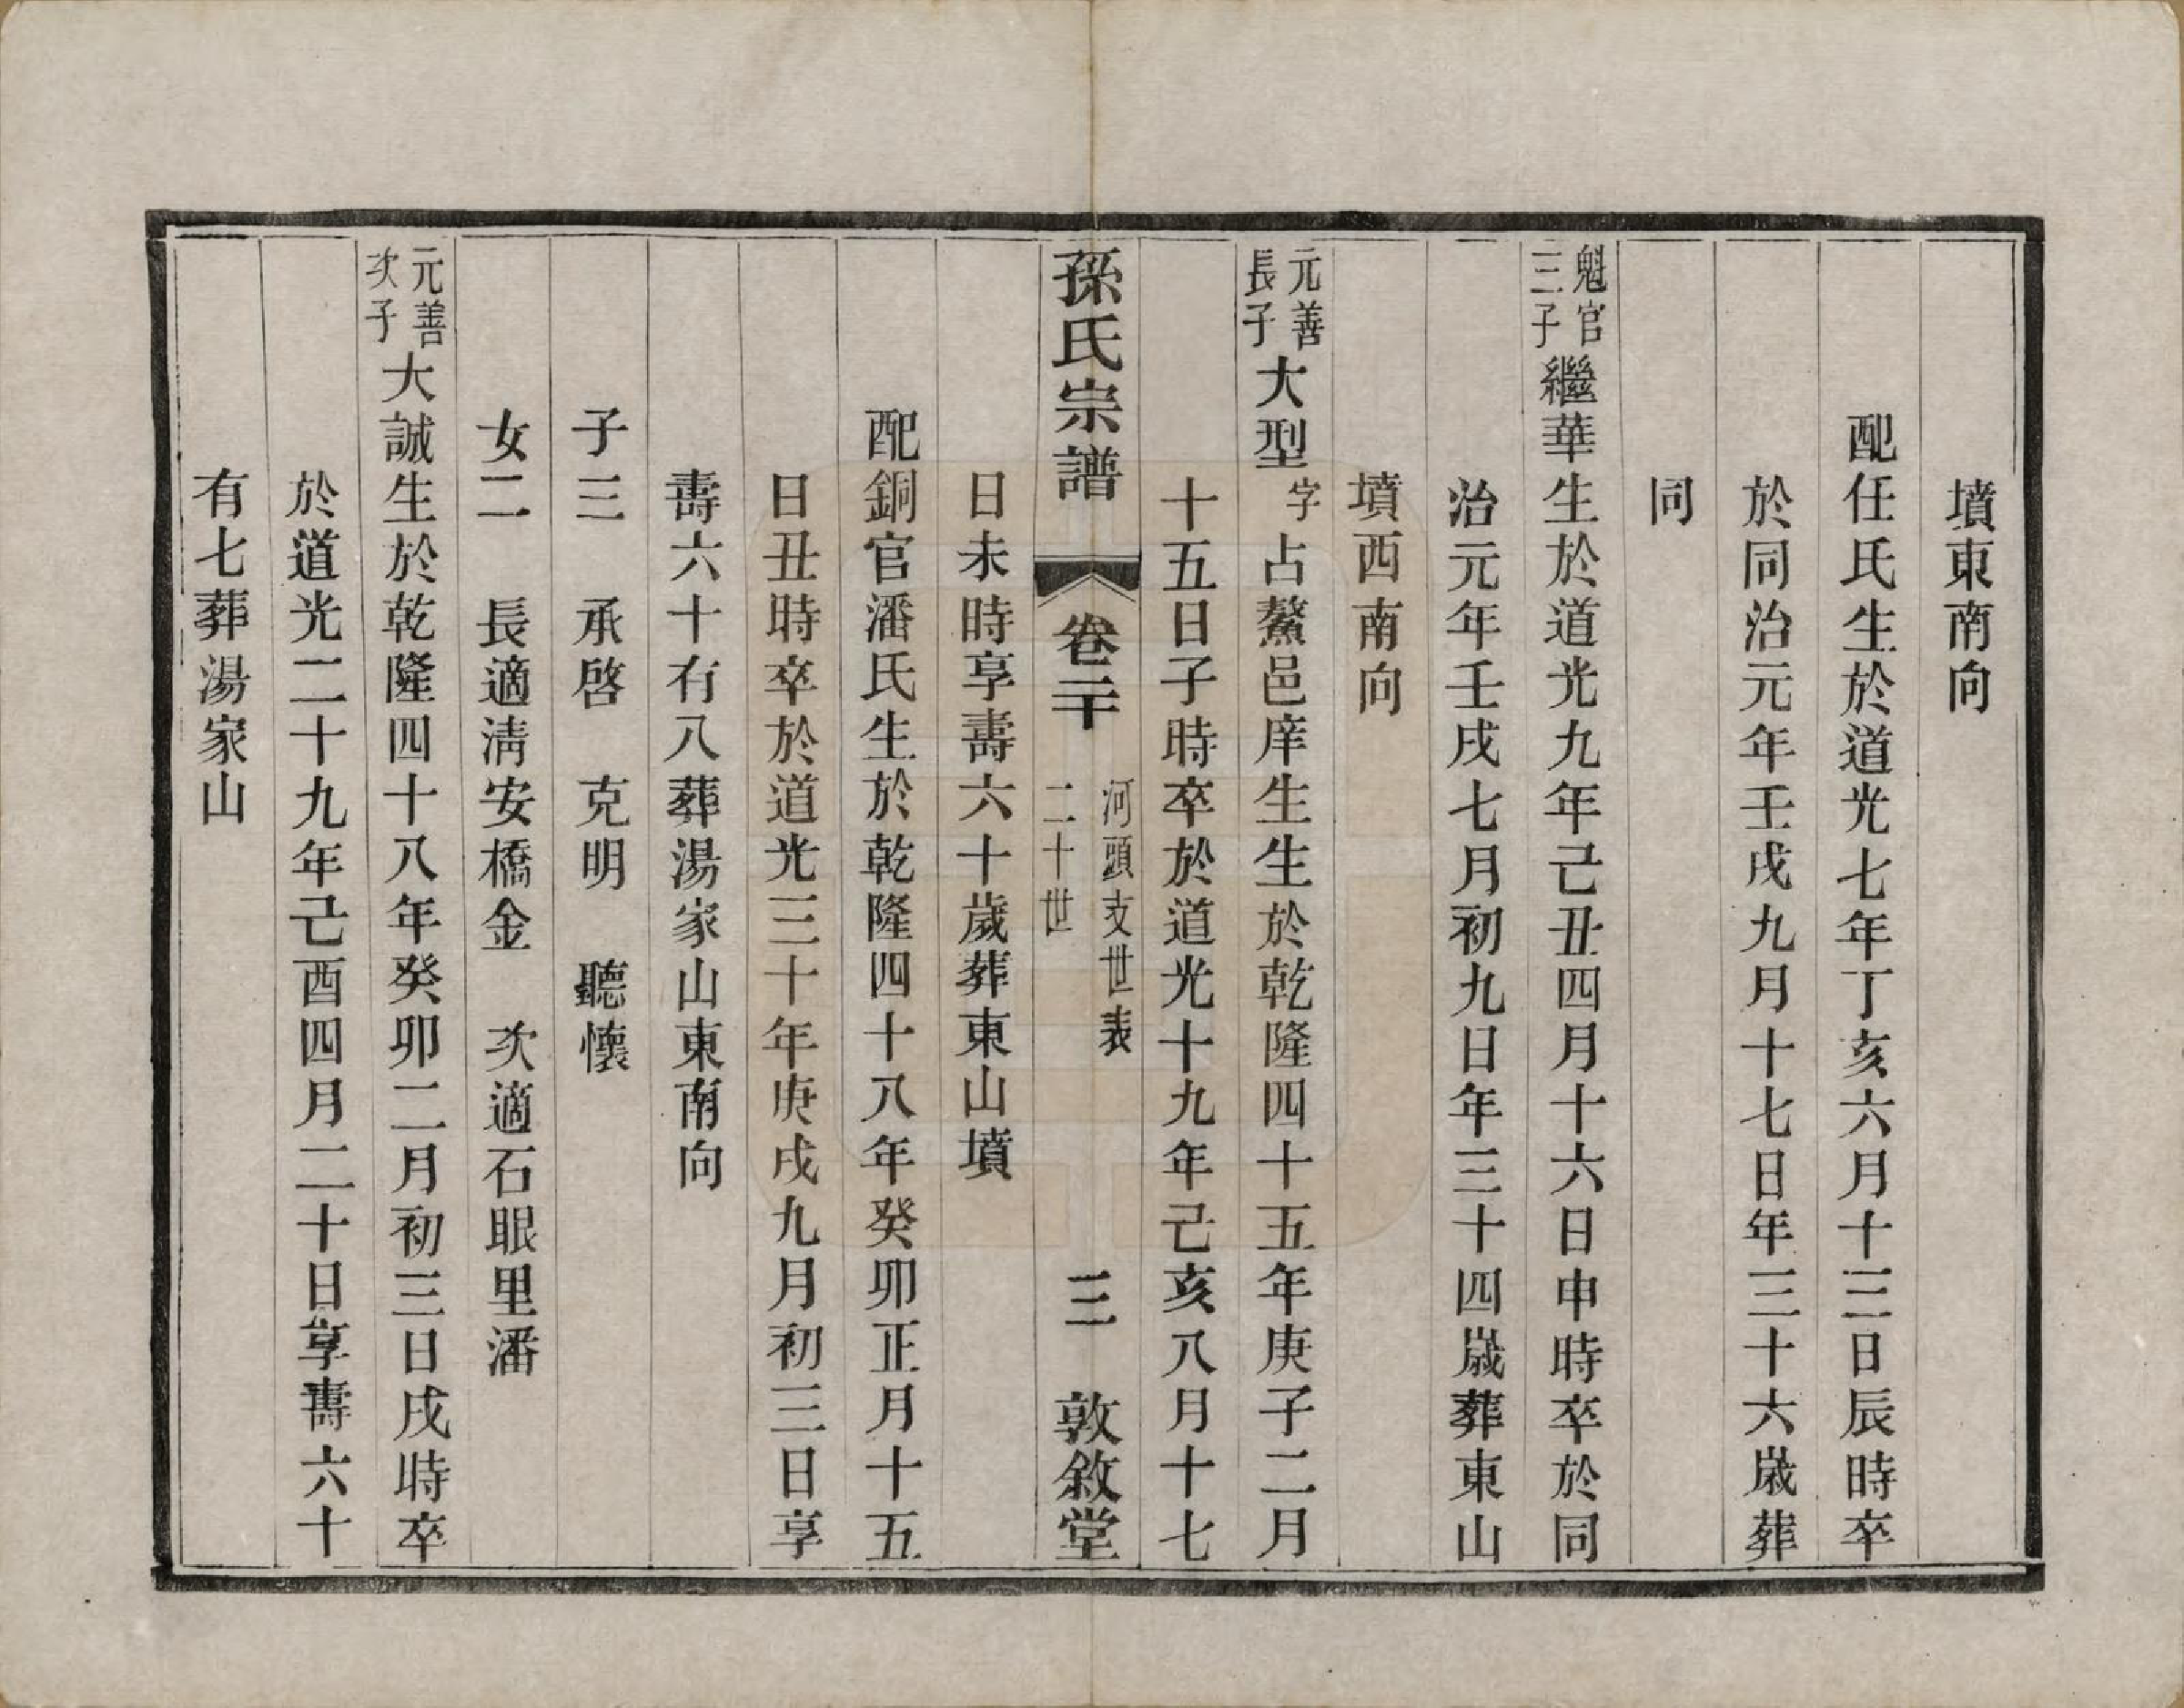 墳東南向
配任氏生於道光七年丁亥六月十三日辰時卒
於同治元年壬戌九月十七日年三十六歲葬
同
魁官三子繼華生於道光九年己丑四月十六日申時卒於同
治元年壬戌七月初九日年三十四歲葬東山
墳西南向
元善長子大型字占鰲邑庠生生於乾隆四十五年庚子二月
十五日子時卒於道光十九年己亥八月十七
孫氏宗譜 卷二十 河頭支世表 二十世 三 敦敘堂
日未時享壽六十歲葬東山墳
配銅官潘氏生於乾隆四十八年癸卯正月十五
日丑時卒於道光三十年庚戌九月初三日享
壽六十有八葬湯家山東南向
子三 承啓 克明 聽懷
女二 長適淸安橋金 次適石眼里潘
元善次子大誠生於乾隆四十八年癸卯二月初三日戌時卒
於道光二十九年己酉四月二十日享壽六十
有七葬湯家山